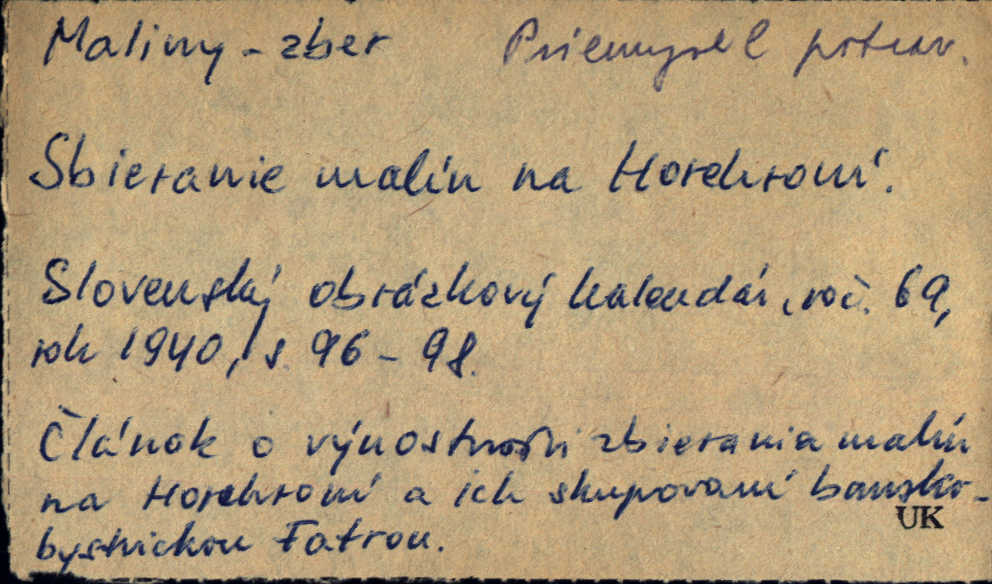 Maliny - zber Priemysel potrav.
Sbieranie malín na Horehroní.
Slovenský obrázkový kalendár, roč. 69,
rok 1940, s. 96 - 98.
Článok o výnostnosti zbierania malín
na Horehroní a ich skupovaní bansko-
bystrickou Fatrou.
UK